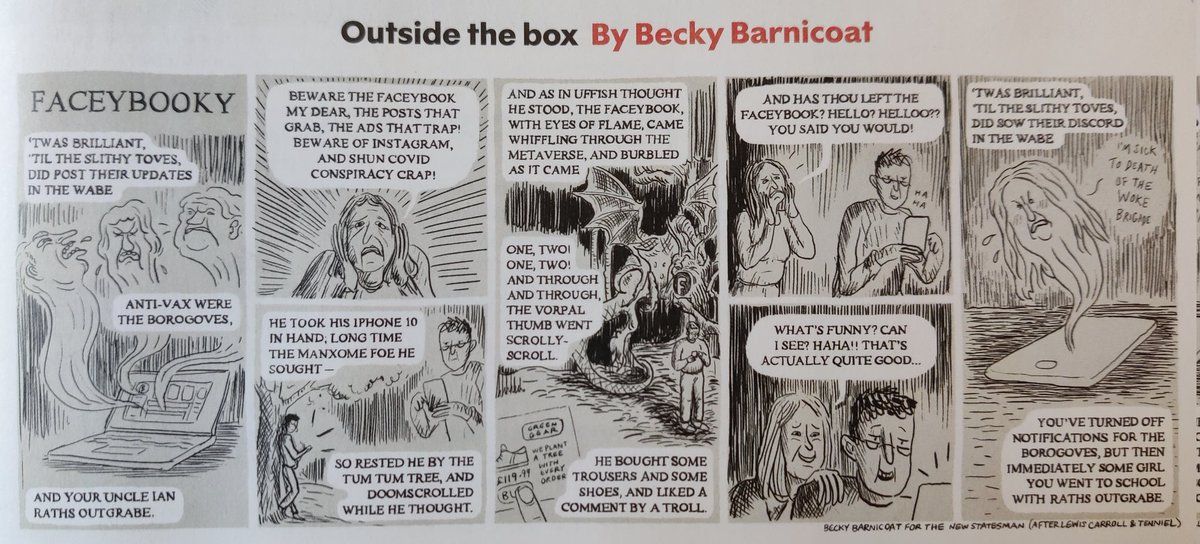 Outside the box By Becky Barnicoat
FACEYBOOKY
'TWAS BRILLIANT,
'TIL THE SLITHY TOVES,
DID POST THEIR UPDATES
IN THE WABE
ANTI-VAX WERE
THE BOROGOVES,
AND YOUR UNCLE IAN
RATHS OUTGRABE.
BEWARE THE FACEYBOOK
MY DEAR, THE POSTS THAT
GRAB, THE ADS THAT TRAP!
BEWARE OF INSTAGRAM,
AND SHUN COVID
CONSPIRACY CRAP!
HE TOOK HIS IPHONE 10
IN HAND, LONG TIME
THE MANXOME FOE HE
SOUGHT –
SO RESTED HE BY THE
TUM TUM TREE, AND
DOOMSCROLLED
WHILE HE THOUGHT.
AND AS IN UFFISH THOUGHT
HE STOOD, THE FACEYBOOK,
WITH EYES OF FLAME, CAME
WHIFFLING THROUGH THE
METAVERSE, AND BURBLED
AS IT CAME
ONE, TWO!
ONE, TWO!
AND THROUGH
AND THROUGH,
THE VORPAL
THUMB WENT
SCROLLY-
SCROLL.
F
GREEN
GEAR
WE PLANT
A TREE
WITH
EVERY
ORDER
£119.99
HE BOUGHT SOME
TROUSERS AND SOME
SHOES, AND LIKED A
COMMENT BY A TROLL.
AND HAS THOU LEFT THE
FACEYBOOK? HELLO? HELLOO??
YOU SAID YOU WOULD!
HA
HA
WHAT'S FUNNY? CAN
I SEE? HAHA!! THAT'S
ACTUALLY QUITE GOOD...
'TWAS BRILLIANT,
'TIL THE SLITHY TOVES,
DID SOW THEIR DISCORD
IN THE WABE
I'M SICK
TO DEATH
OF THE
WOKE
BRIGADE
YOU'VE TURNED OFF
NOTIFICATIONS FOR THE
BOROGOVES, BUT THEN
IMMEDIATELY SOME GIRL
YOU WENT TO SCHOOL
WITH RATHS OUTGRABE.
BECKY BARNICOAT FOR THE NEW STATESMAN (AFTER LEWIS CARROLL & TENNIEL)